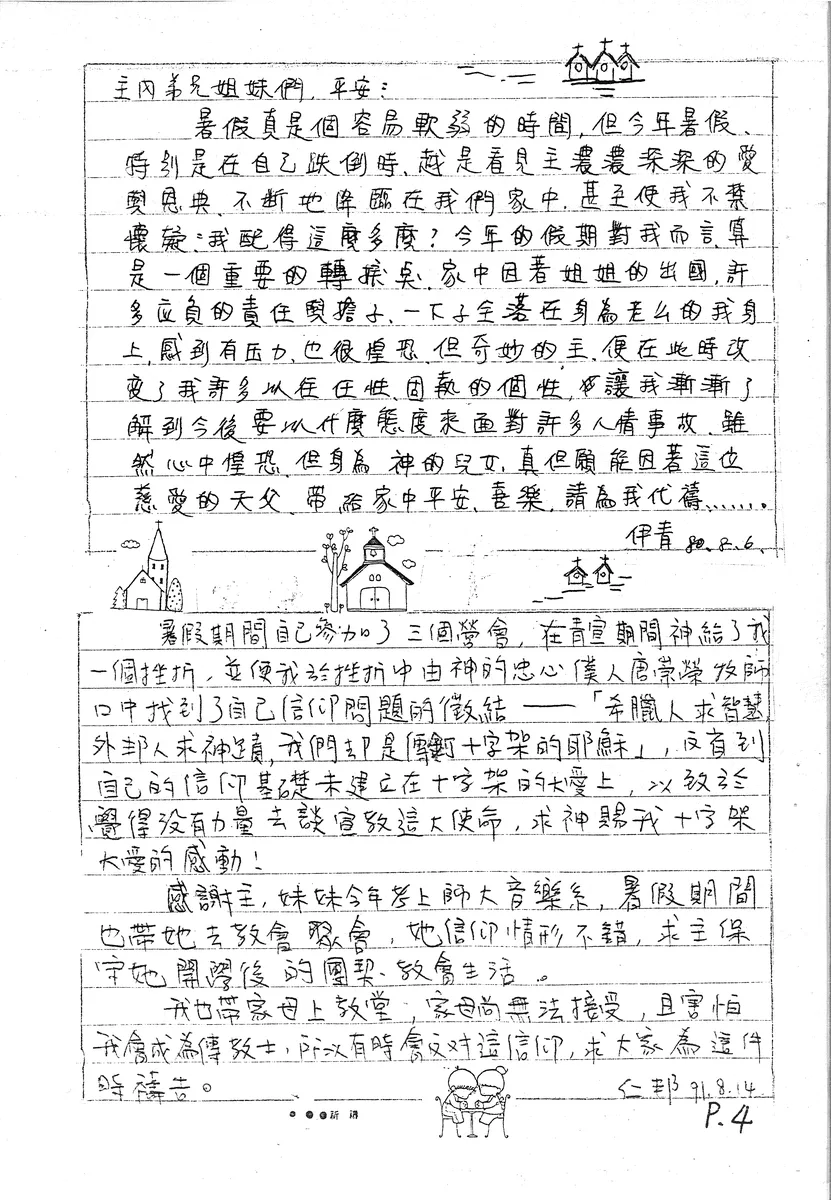 主內弟兄姐妹們，平安：
暑假真是個容易軟弱的時間，但今年暑假、
特別是在自己跌倒時、越是看見主濃濃深深的愛
與恩典、不斷地降臨在我們家中，甚至使我不禁
懷疑：我配得這麼多麼？今年的假期對我而言，算
是一個重要的轉捩点、家中因著姐姐的出國，許
多应負的責任與擔子、一下子全落在身為老么的我身
上，感到有压力，也很惶恐，但奇妙的主、便在此時改
变了我許多以往任性、固執的個性，讓我漸漸了
解到今後要以什麼態度來面對許多人情事故、雖
然心中惶恐，但身為神的兒女，真但願能因著這位
慈愛的天父、帶給家中平安、喜樂，請為我代禱……
伊青 80.8.6.
暑假期間自己參加了三個營會，在青宣期間神給了我
一個挫折，並使我於挫折中由神的忠心僕人唐崇榮牧師
口中找到了自己信仰問題的徵結——「希臘人求智慧，
外邦人求神蹟，我們却是傳釘十字架的耶穌」，反省到
自己的信仰基礎未建立在十字架的大愛上，以致於
覺得沒有力量去談宣教這大使命，求神賜我十字架
大愛的感動！
感謝主，妹妹今年考上師大音樂系，暑假期間
也帶她去教會聚會，她信仰情形不錯，求主保
守她開學後的團契、教會生活。
我也帶家母上教堂，家母尚無法接受，且害怕
我會成為傳教士，所以有時會反对這信仰，求大家為這件
事禱告。
仁邦 91.8.14
P.4